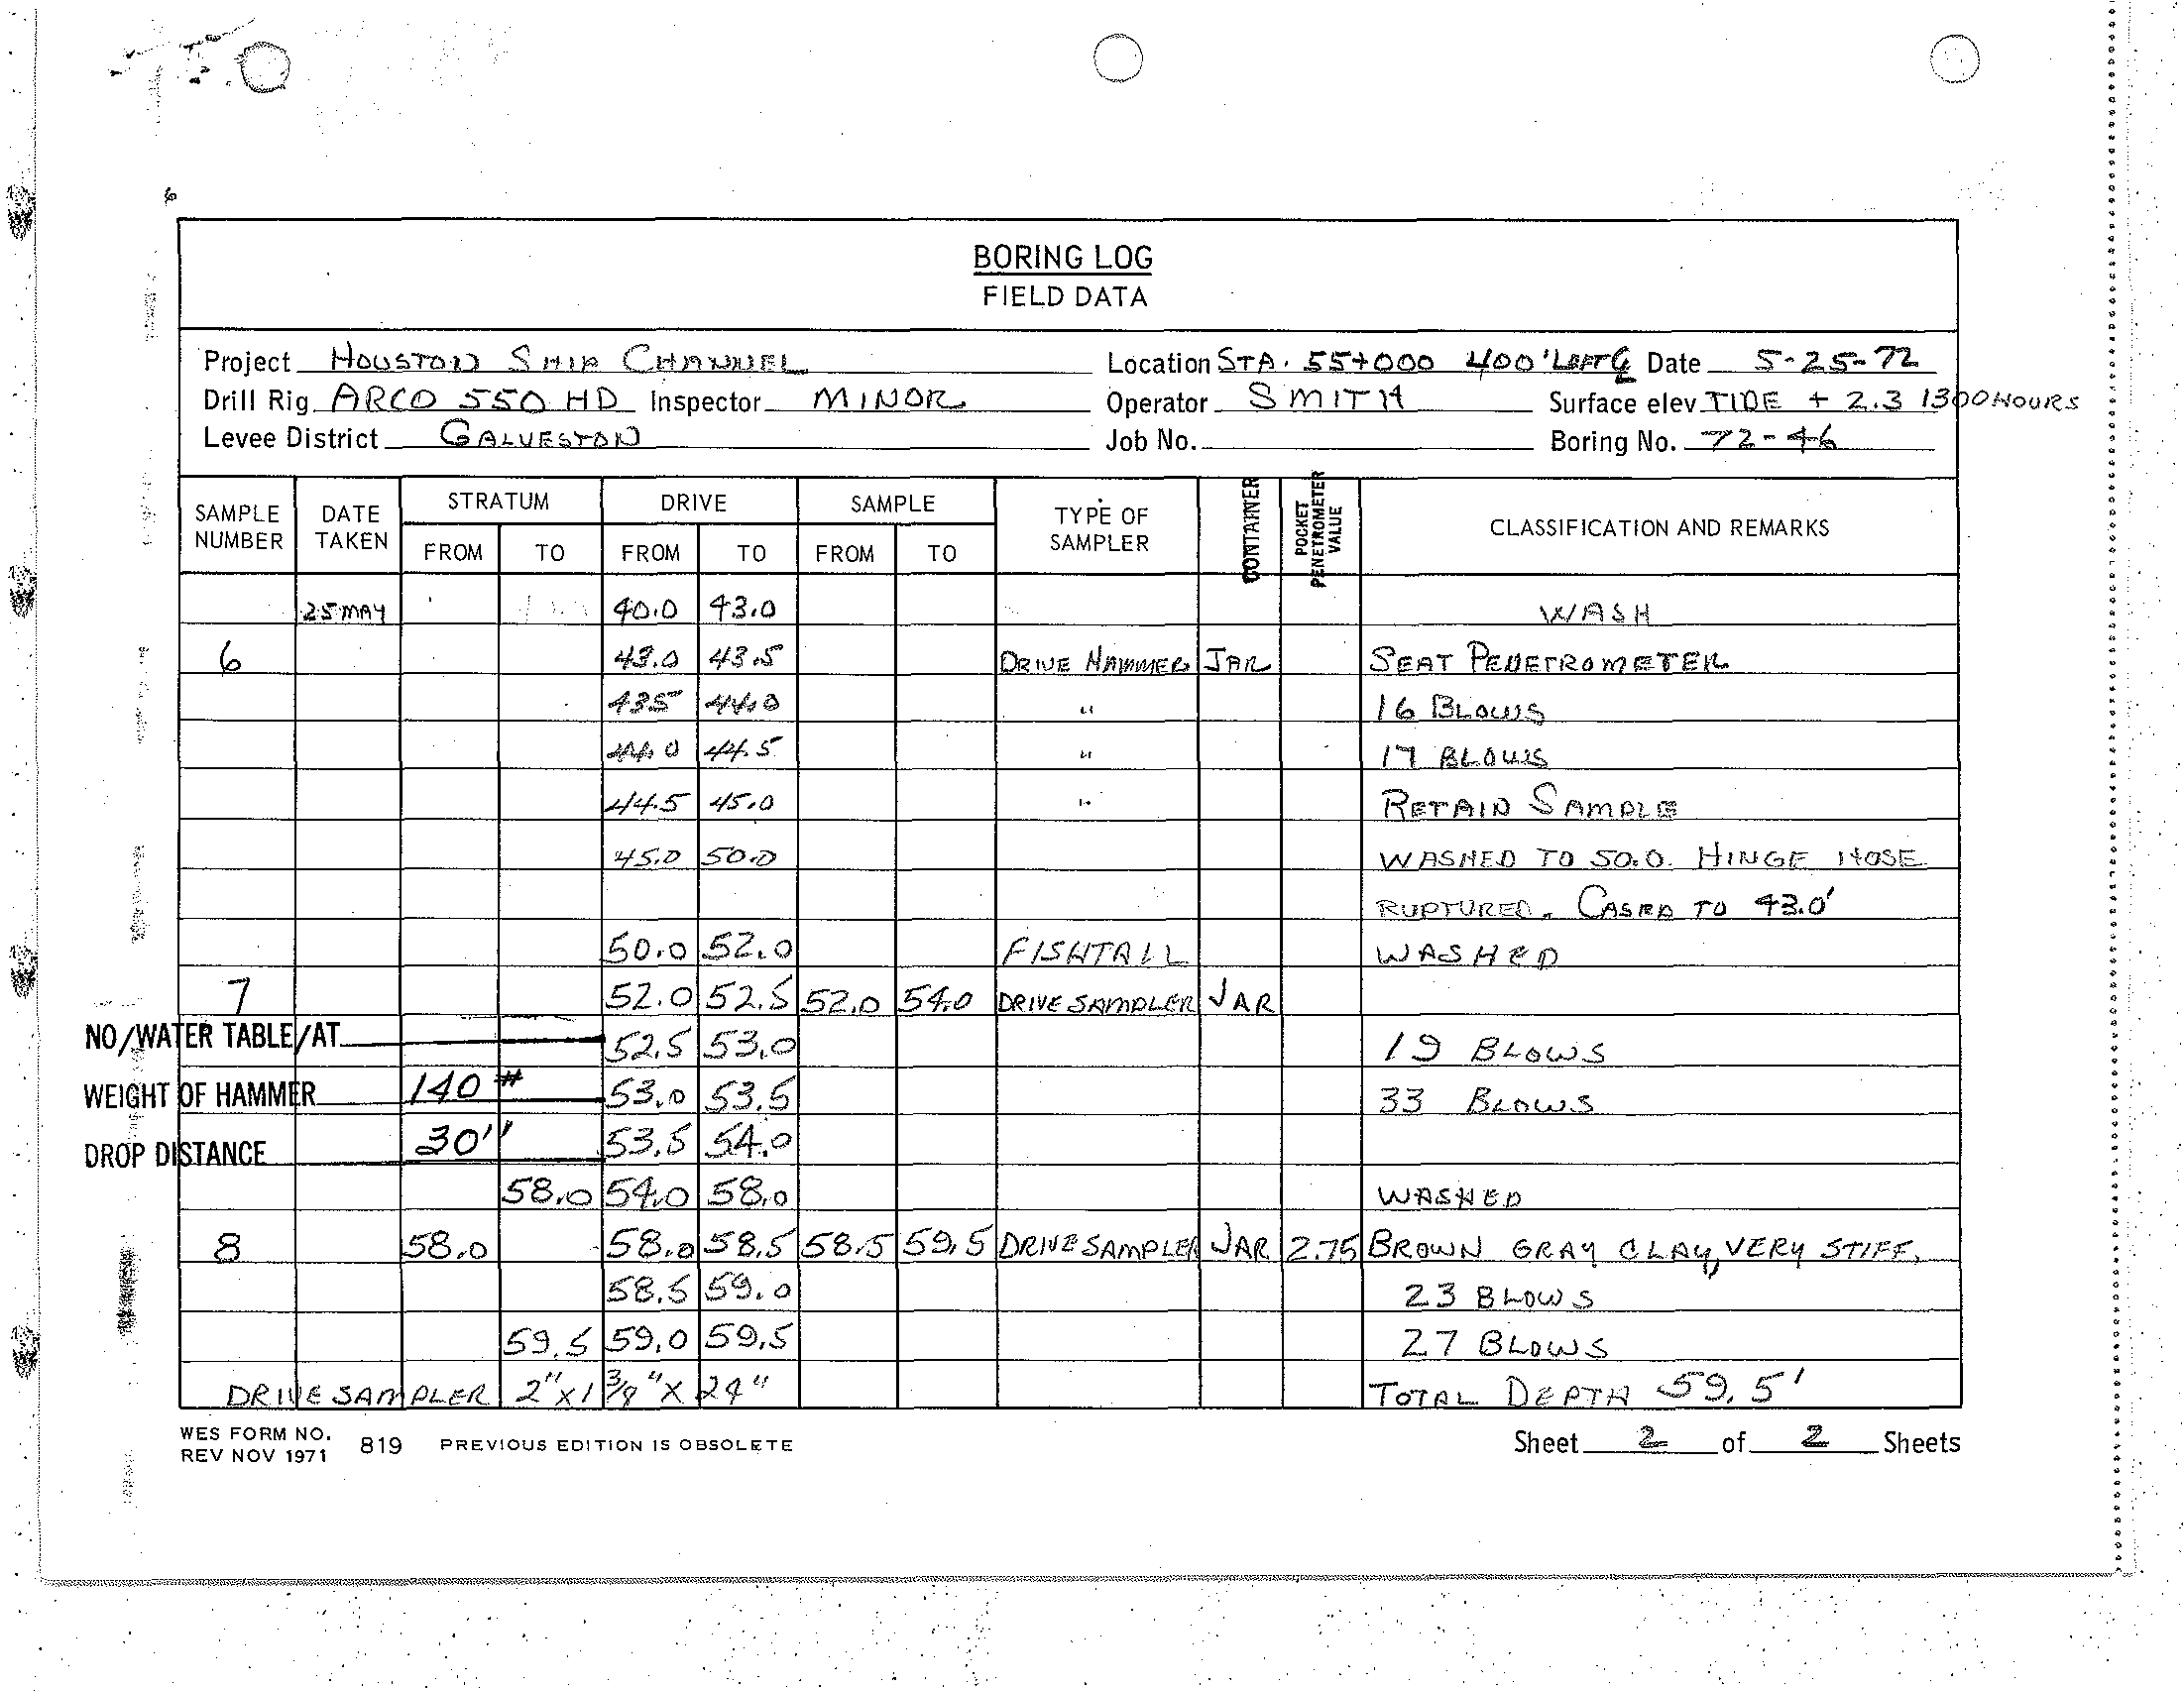 BORING LOG
FIELD DATA
Project HOUSTON SHIP CHANNEL Location STA. 55+000 400' LEFT ℄ Date 5-25-72
Drill Rig ARCO 550 HD Inspector MINOR Operator SMITH Surface elev TIDE + 2.3 1300 HOURS
Levee District GALVESTON Job No. Boring No. 72-46
SAMPLE NUMBER DATE TAKEN STRATUM FROM TO DRIVE FROM TO SAMPLE FROM TO TYPE OF SAMPLER CONTAINER POCKET PENETROMETER VALUE CLASSIFICATION AND REMARKS
25 MAY 40.0 43.0 WASH
6 43.0 43.5 DRIVE HAMMER JAR SEAT PENETROMETER
435 44.0 " 16 BLOWS
44.0 44.5 " 17 BLOWS
44.5 45.0 " RETAIN SAMPLE
45.0 50.0 WASHED TO 50.0. HINGE HOSE
RUPTURED. CASED TO 43.0'
50.0 52.0 FISHTALL WASHED
7 52.0 52.5 52.0 54.0 DRIVE SAMPLER JAR
NO/WATER TABLE/AT 52.5 53.0 19 BLOWS
WEIGHT OF HAMMER 140 # 53.0 53.5 33 BLOWS
DROP DISTANCE 30" 53.5 54.0
58.0 54.0 58.0 WASHED
8 58.0 58.0 58.5 58.5 59.5 DRIVE SAMPLER JAR 2.75 BROWN GRAY CLAY, VERY STIFF,
58.5 59.0 23 BLOWS
59.5 59.0 59.5 27 BLOWS
DRIVE SAMPLER 2" X 1 3/8" X 24" TOTAL DEPTH 59.5'
WES FORM NO. 819 PREVIOUS EDITION IS OBSOLETE Sheet 2 of 2 Sheets
REV NOV 1971